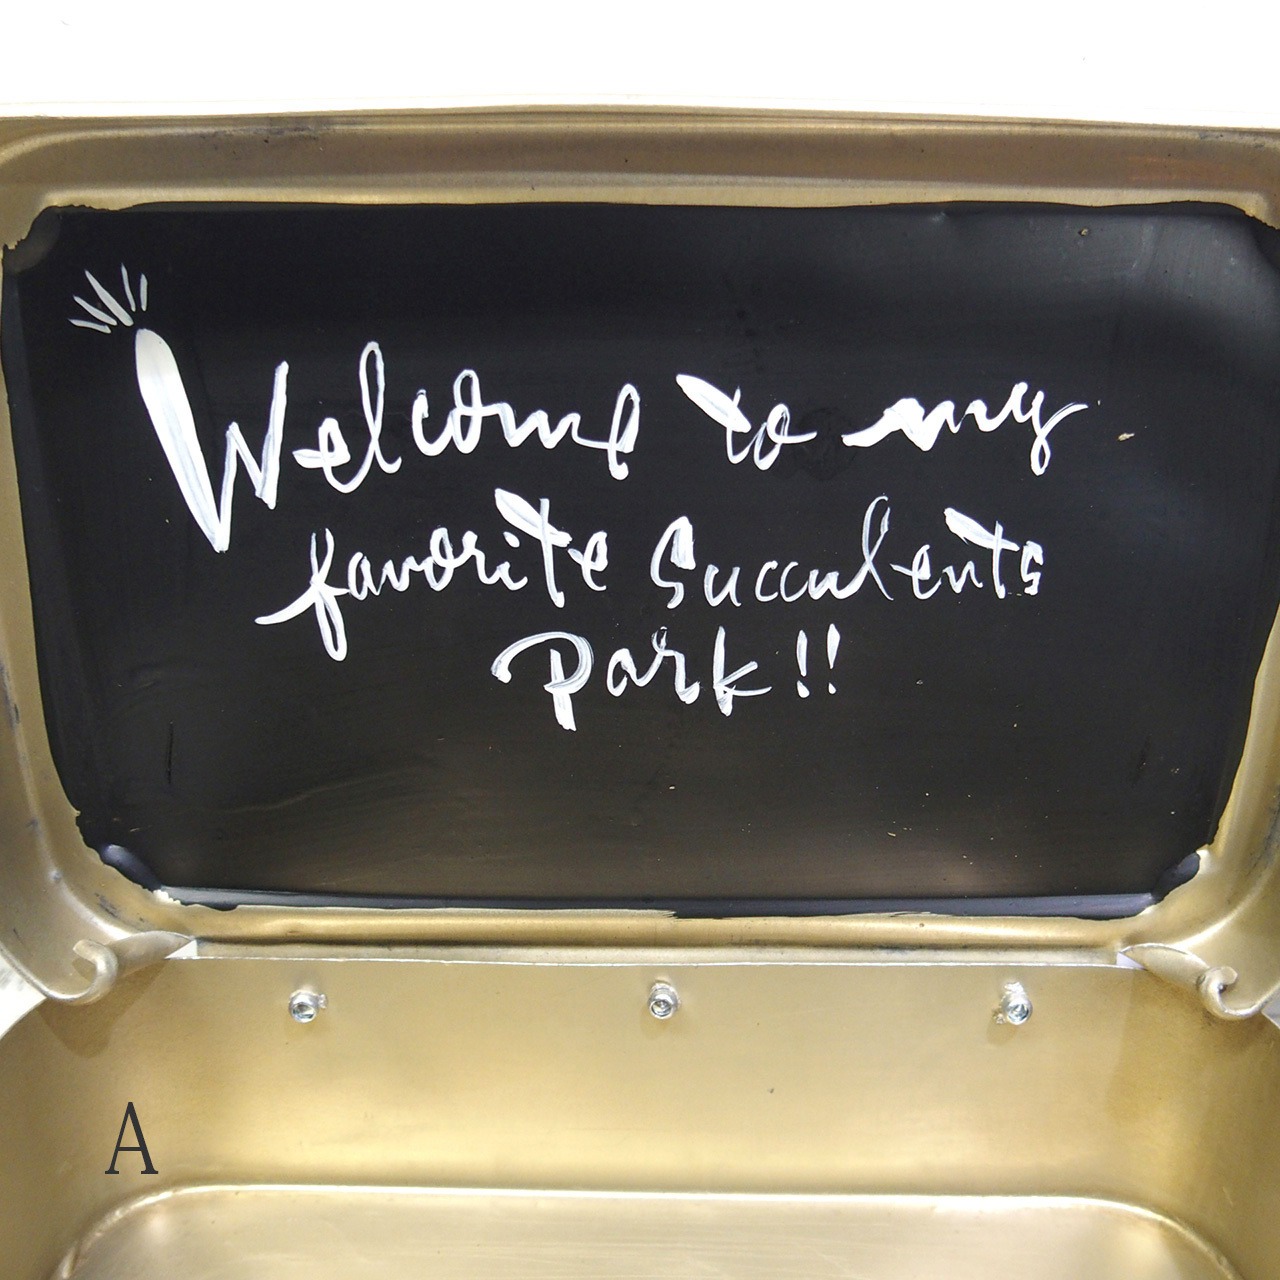 Welcome to my
favorite Succulents
Park!!
A